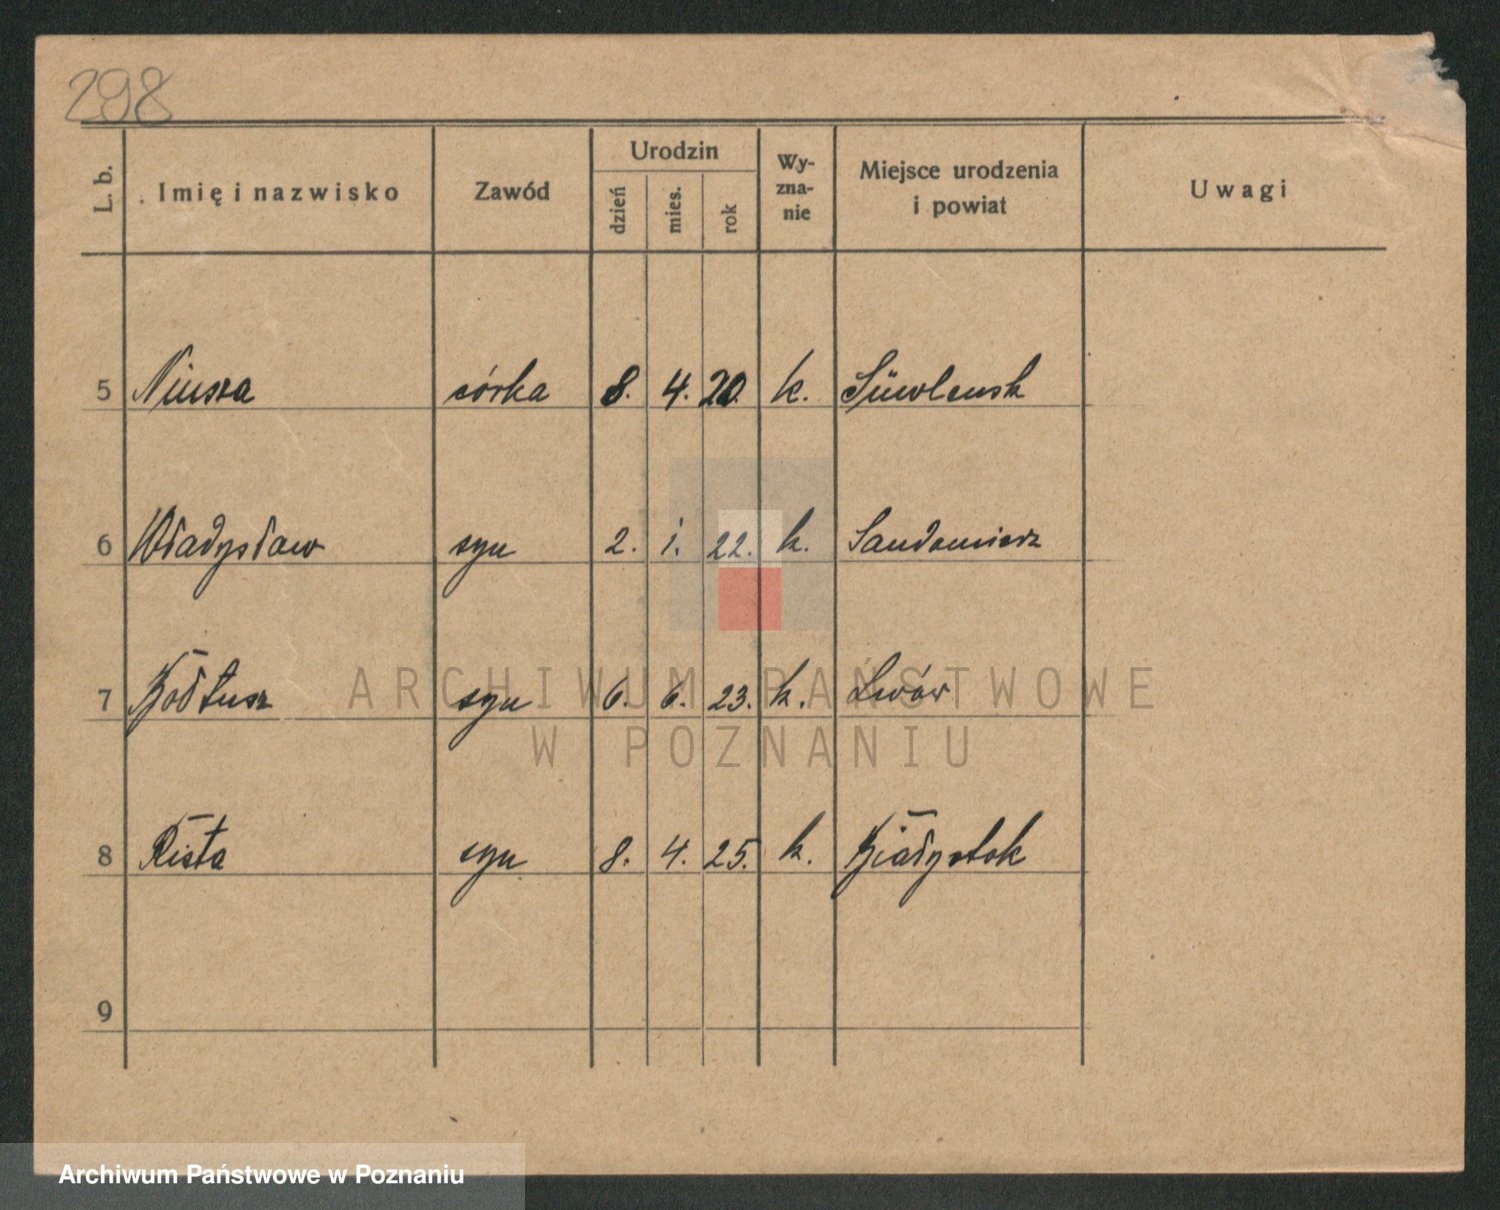 298
L. b. Imię i nazwisko Zawód Urodzin dzień mies. rok Wy-zna-nie Miejsce urodzenia i powiat Uwagi
5 Niusza córka 8. 4. 20. k. Smolensk
6 Władysław syn 2. 1. 22. k. Sandomierz
7 syn 6. 6. 23. k. Lwów
8 Rista syn 8. 4. 25. k. Białystok
9
ARCHIWUM PAŃSTWOWE
W POZNANIU
Archiwum Państwowe w Poznaniu